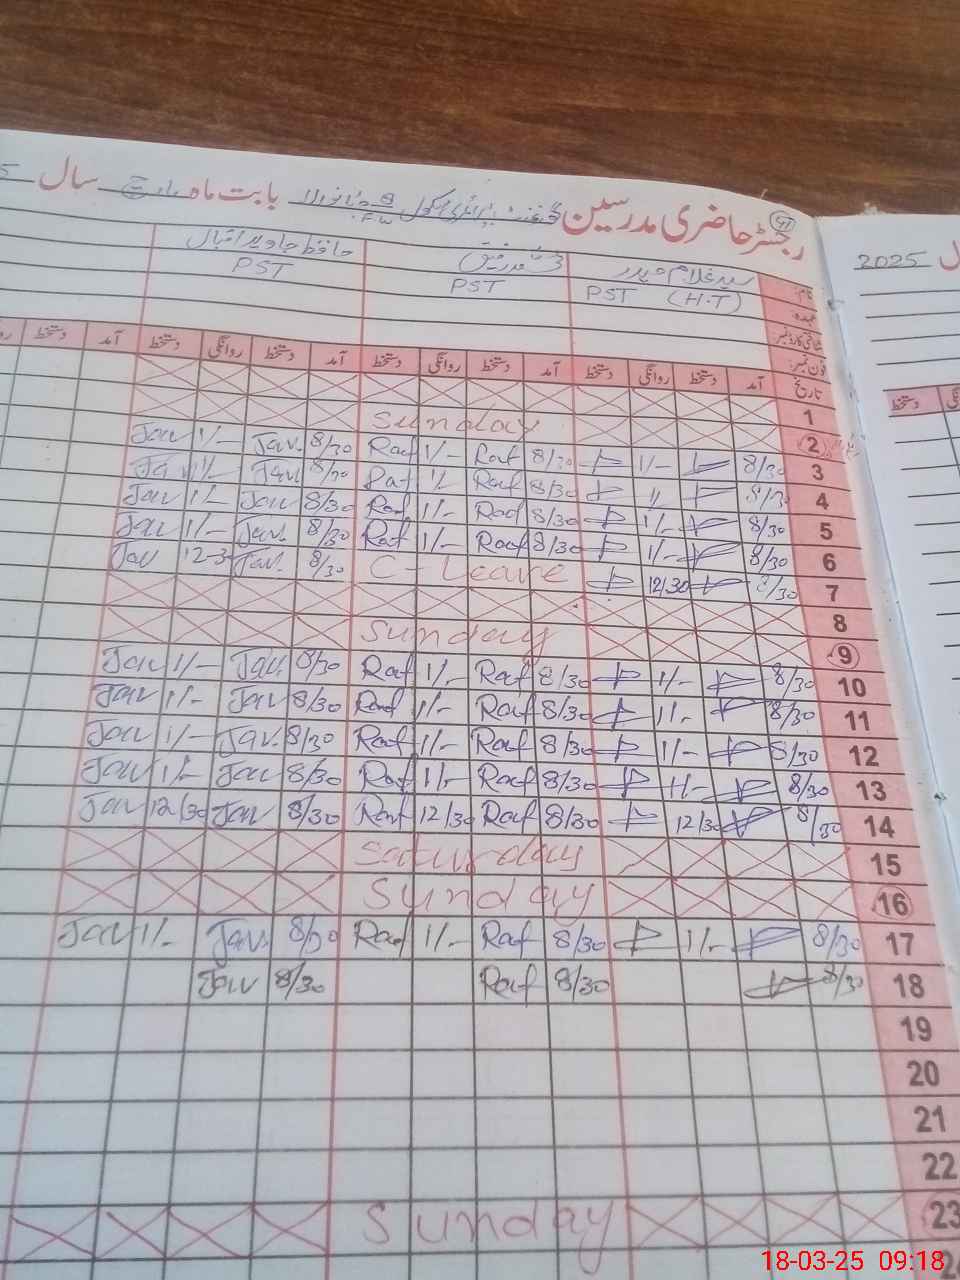 رجسٹر حاضری مدرسین گورنمنٹ پرائمری سکول بابت ماہ مارچ سال
2025
نام: سید غلام حیدر محمد رفیق حافظ جاوید اقبال
عہدہ: PST (H.T) PST PST
شناختی کارڈ نمبر:
فون نمبر:
تاریخ آمد دستخط روانگی دستخط آمد دستخط روانگی دستخط آمد دستخط روانگی دستخط آمد دستخط
دستخط
1
Sunday 2
Jav 1/- Jav. 8/30 Raf 1/- Raf 8/30 1/- 8/30 3
Jav 1/- Jav 8/30 Raf 1/- Raf 8/30 1/- 8/30 4
Jav 1/- Jav 8/30 Raf 1/- Raf 8/30 1/- 8/30 5
Jav 1/- Jav. 8/30 Raf 1/- Raf 8/30 1/- 8/30 6
Jav 12-3 Jav. 8/30 C-Leave 12/30 8/30 7
8
Sunday 9
Jav 1/- Jav. 8/30 Raf 1/- Raf 8/30 1/- 8/30 10
Jav 1/- Jav 8/30 Raf 1/- Raf 8/30 1/- 8/30 11
Jav 1/- Jav. 8/30 Raf 1/- Raf 8/30 1/- 8/30 12
Jav 1/- Jav 8/30 Raf 1/- Raf 8/30 1/- 8/30 13
Jav 12/30 Jav 8/30 Raf 12/30 Raf 8/30 12/30 8/30 14
Saturday 15
Sunday 16
Jav 1/- Jav. 8/30 Raf 1/- Raf 8/30 1/- 8/30 17
Jav 8/30 Raf 8/30 8/30 18
19
20
21
22
Sunday 23
18-03-25 09:18